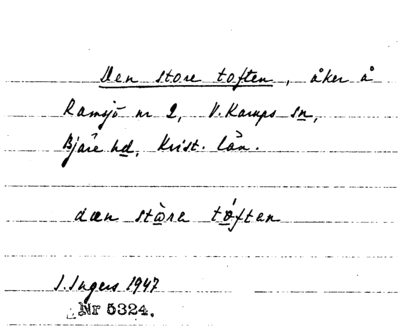 Den store toften, åker å
Ramsjö nr 2, V. Karups sn,
Bjäre hd, Krist. län.
dæn stòre tóften
I. Ingers 1947
Nr 5324.